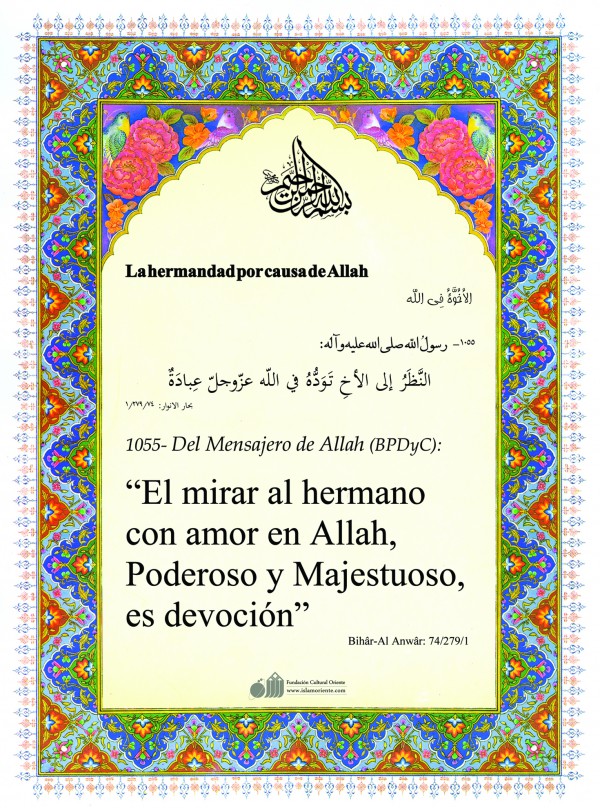 بسم الله الرحمن الرحيم
La hermandad por causa de Allah
الأُخُوَّةُ فِي اللّه
١٠٥٥– رسولُ اللّه صلى اللّه عليه وآله:
النَّظَرُ إلى الأخِ تَوَدُّهُ في اللّه عزّوجلّ عِبادَةٌ
بحار الانوار: ١/٢٧٩/٧٤
1055- Del Mensajero de Allah (BPDyC):
“El mirar al hermano
con amor en Allah,
Poderoso y Majestuoso,
es devoción”
Bihâr-Al Anwâr: 74/279/1
Fundación Cultural Oriente
www.islamoriente.com